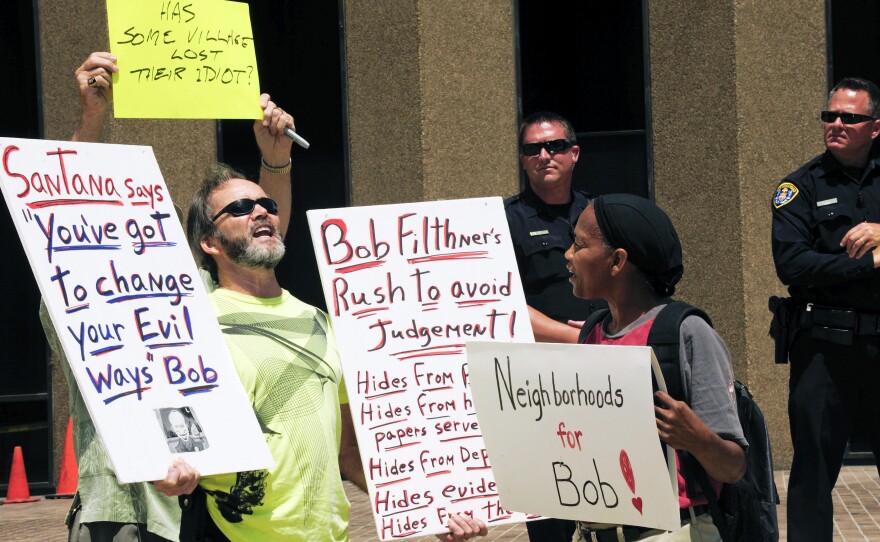 HAS
SOME VILLAGE
LOST
THEIR IDIOT?
Santana says
"You've got
to change
your Evil
Ways" Bob
Bob Filthner's
Rush To avoid
Judgement!
Hides From
Hides From
papers serve
Hides From Dep
Hides evide
Hides From
Neighborhoods
for
Bob!